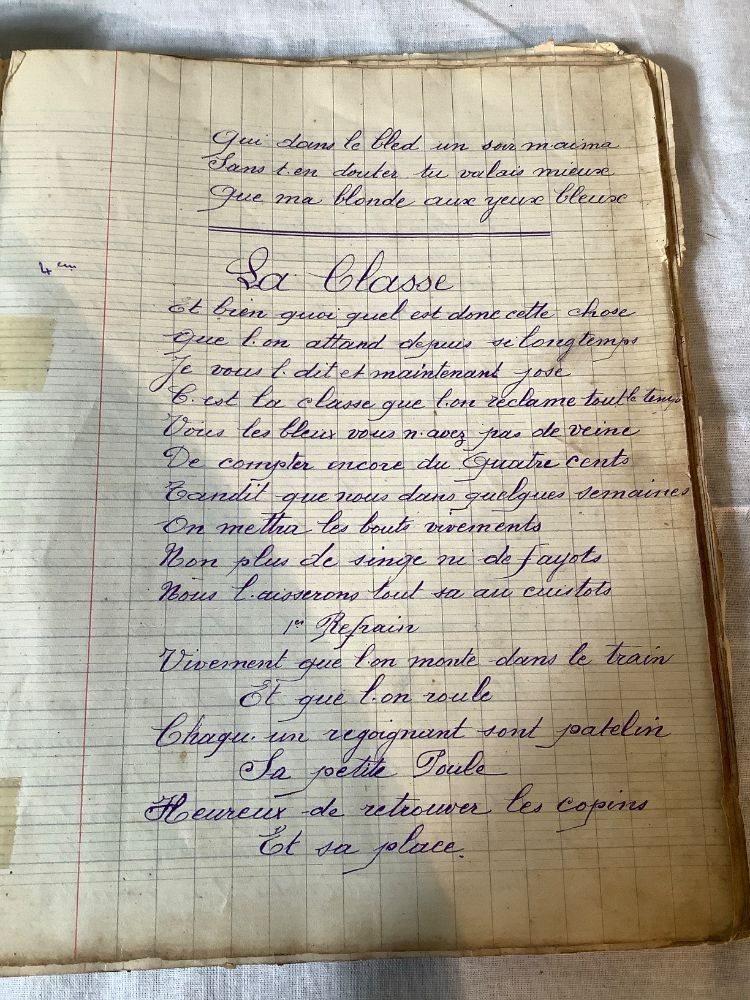 Qui dans le bled un soir m'aima
Sans t.en douter tu valais mieux
Que ma blonde aux yeux bleux
4em
La Classe
Et bien quoi quel est donc cette chose
Que l.on attand depuis si longtemps
Je vous l.dit et maintenant jose
C.est la classe que l.on réclame tout le temps
Vous les bleux vous n.avez pas de veine
De compter encore du Quatre cents
Tandit que nous dans quelques semaines
On mettra les bouts vivements
Non plus de singe ni de fayots
Nous l.aisserons tout sa au cuistots
1er Refrain
Vivement que l.on monte dans le train
Et que l.on roule
Chaqu.un regoignant sont patelin
Sa petite Poule
Heureux de retrouver les copins
Et sa place.